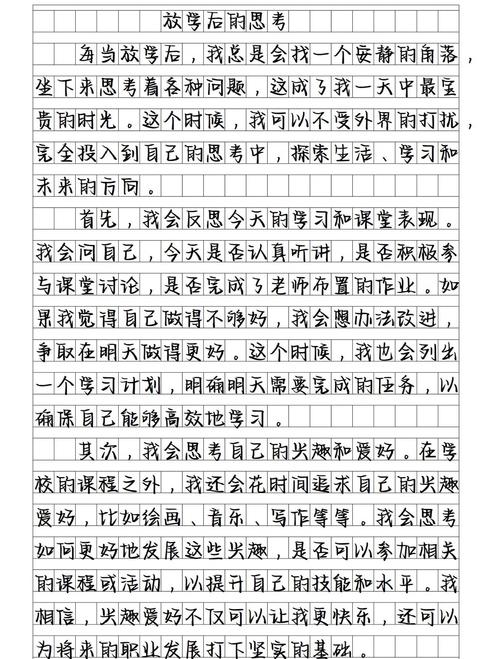 放学后的思考
每当放学后，我总是会找一个安静的角落，
坐下来思考着各种问题，这成了我一天中最宝
贵的时光。这个时候，我可以不受外界的打扰，
完全投入到自己的思考中，探索生活、学习和
未来的方向。
首先，我会反思今天的学习和课堂表现。
我会问自己，今天是否认真听讲，是否积极参
与课堂讨论，是否完成了老师布置的作业。如
果我觉得自己做得不够好，我会想办法改进，
争取在明天做得更好。这个时候，我也会列出
一个学习计划，明确明天需要完成的任务，以
确保自己能够高效地学习。
其次，我会思考自己的兴趣和爱好。在学
校的课程之外，我还会花时间追求自己的兴趣
爱好，比如绘画、音乐、写作等等。我会思考
如何更好地发展这些兴趣，是否可以参加相关
的课程或活动，以提升自己的技能和水平。我
相信，兴趣爱好不仅可以让我更快乐，还可以
为将来的职业发展打下坚实的基础。